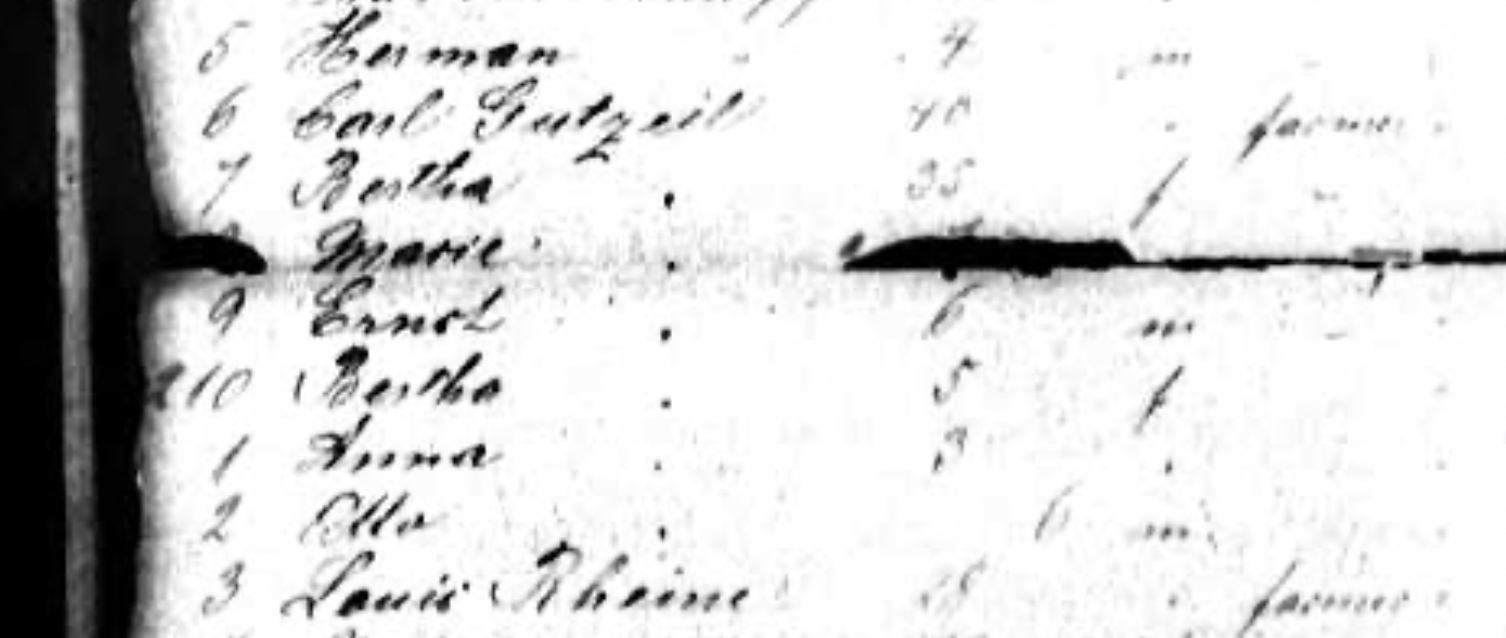 5 Herman 4 m
6 Carl Gutzeit 40 " farmer
7 Bertha " 35 f
Marie "
9 Ernst " 6 m
210 Bertha " 5 f
1 Anna " 3 "
2 Otto " 6 m
3 Louis Rheine 28 " farmer